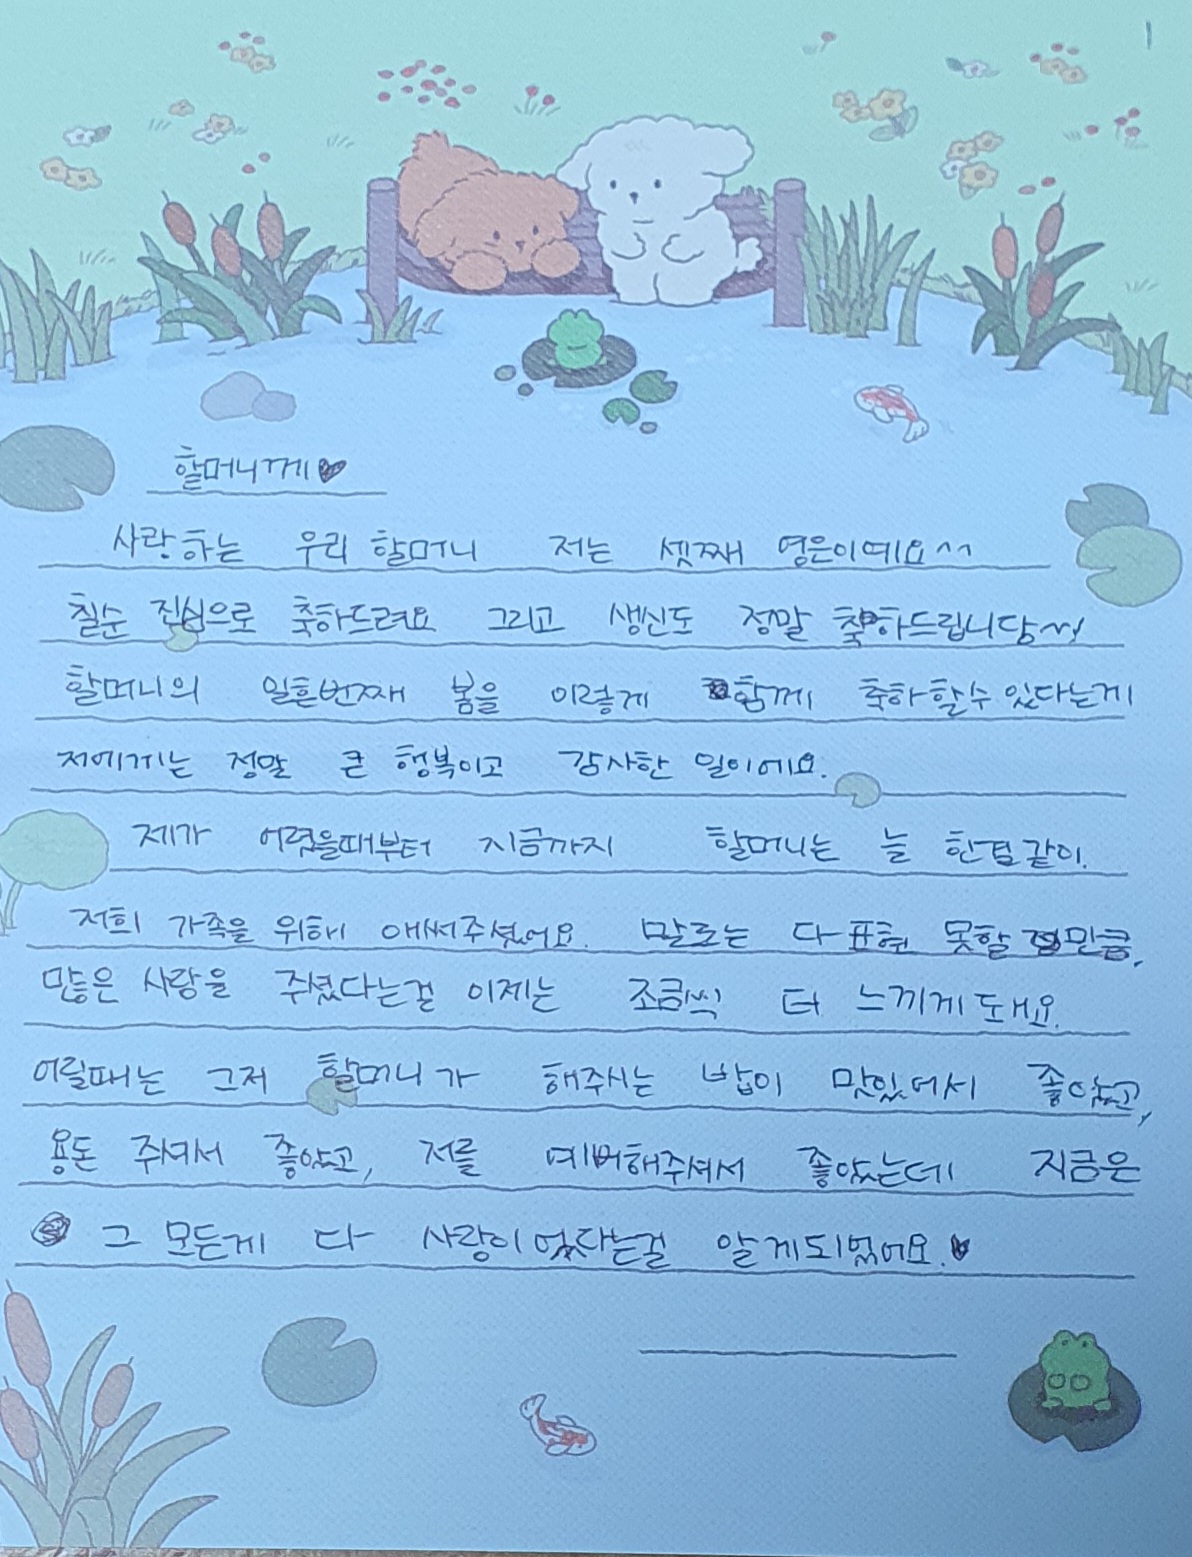 1
할머니께♥
사랑하는 우리 할머니 저는 셋째 영은이예요^^
칠순 진심으로 축하드려요 그리고 생신도 정말 축하드립니당~!
할머니의 일흔번째 봄을 이렇게 함께 축하할수있다는게
저에게는 정말 큰 행복이고 감사한 일이에요.
제가 어렸을때부터 지금까지 할머니는 늘 한결같이.
저희 가족을 위해 애써주셨어요. 말로는 다 표현 못할 만큼,
많은 사랑을 주셨다는걸 이제는 조금씩 더 느끼게돼요.
어릴때는 그저 할머니가 해주시는 밥이 맛있어서 좋았고,
용돈 주셔서 좋았고, 저를 예뻐해주셔서 좋았는데 지금은
그 모든게 다 사랑이었다는걸 알게되었어요.♥